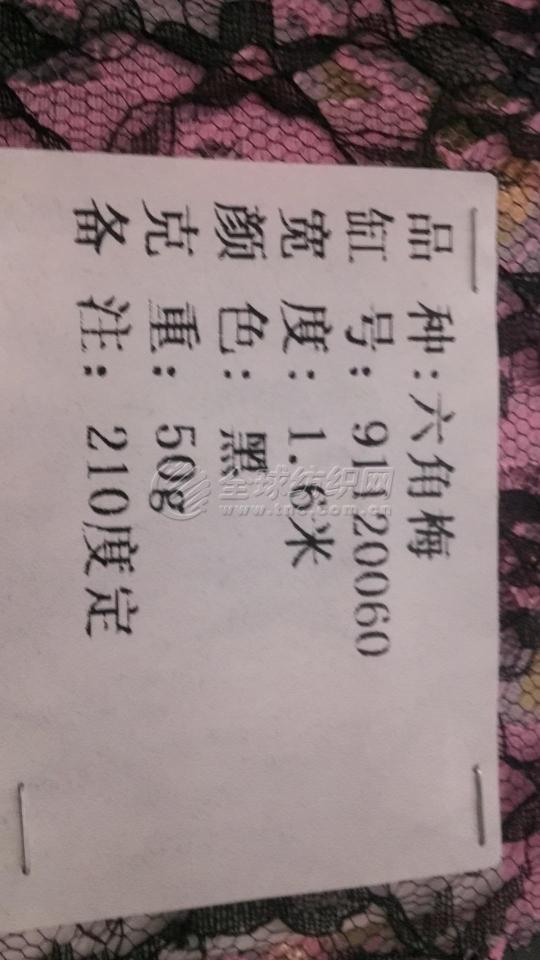 品 种：六角梅
缸 号：91120060
宽 度：1.6米
颜 色：黑
克 重：50g
备 注：210度定
全球纺织网
www.tnc.com.cn